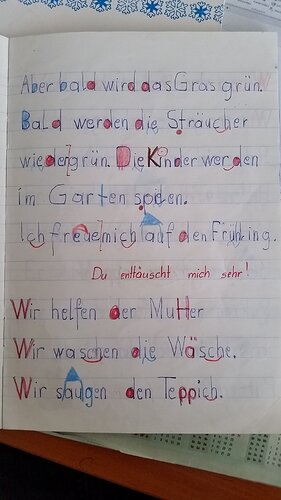 Aber bald wird das Gras grün.
Bald werden die Sträucher
wieder grün. Die Kinder werden
im Garten spielen.
Ich freue mich auf den Frühling.
Du enttäuscht mich sehr!
Wir helfen der Mutter
Wir waschen die Wäsche.
Wir saugen den Teppich.